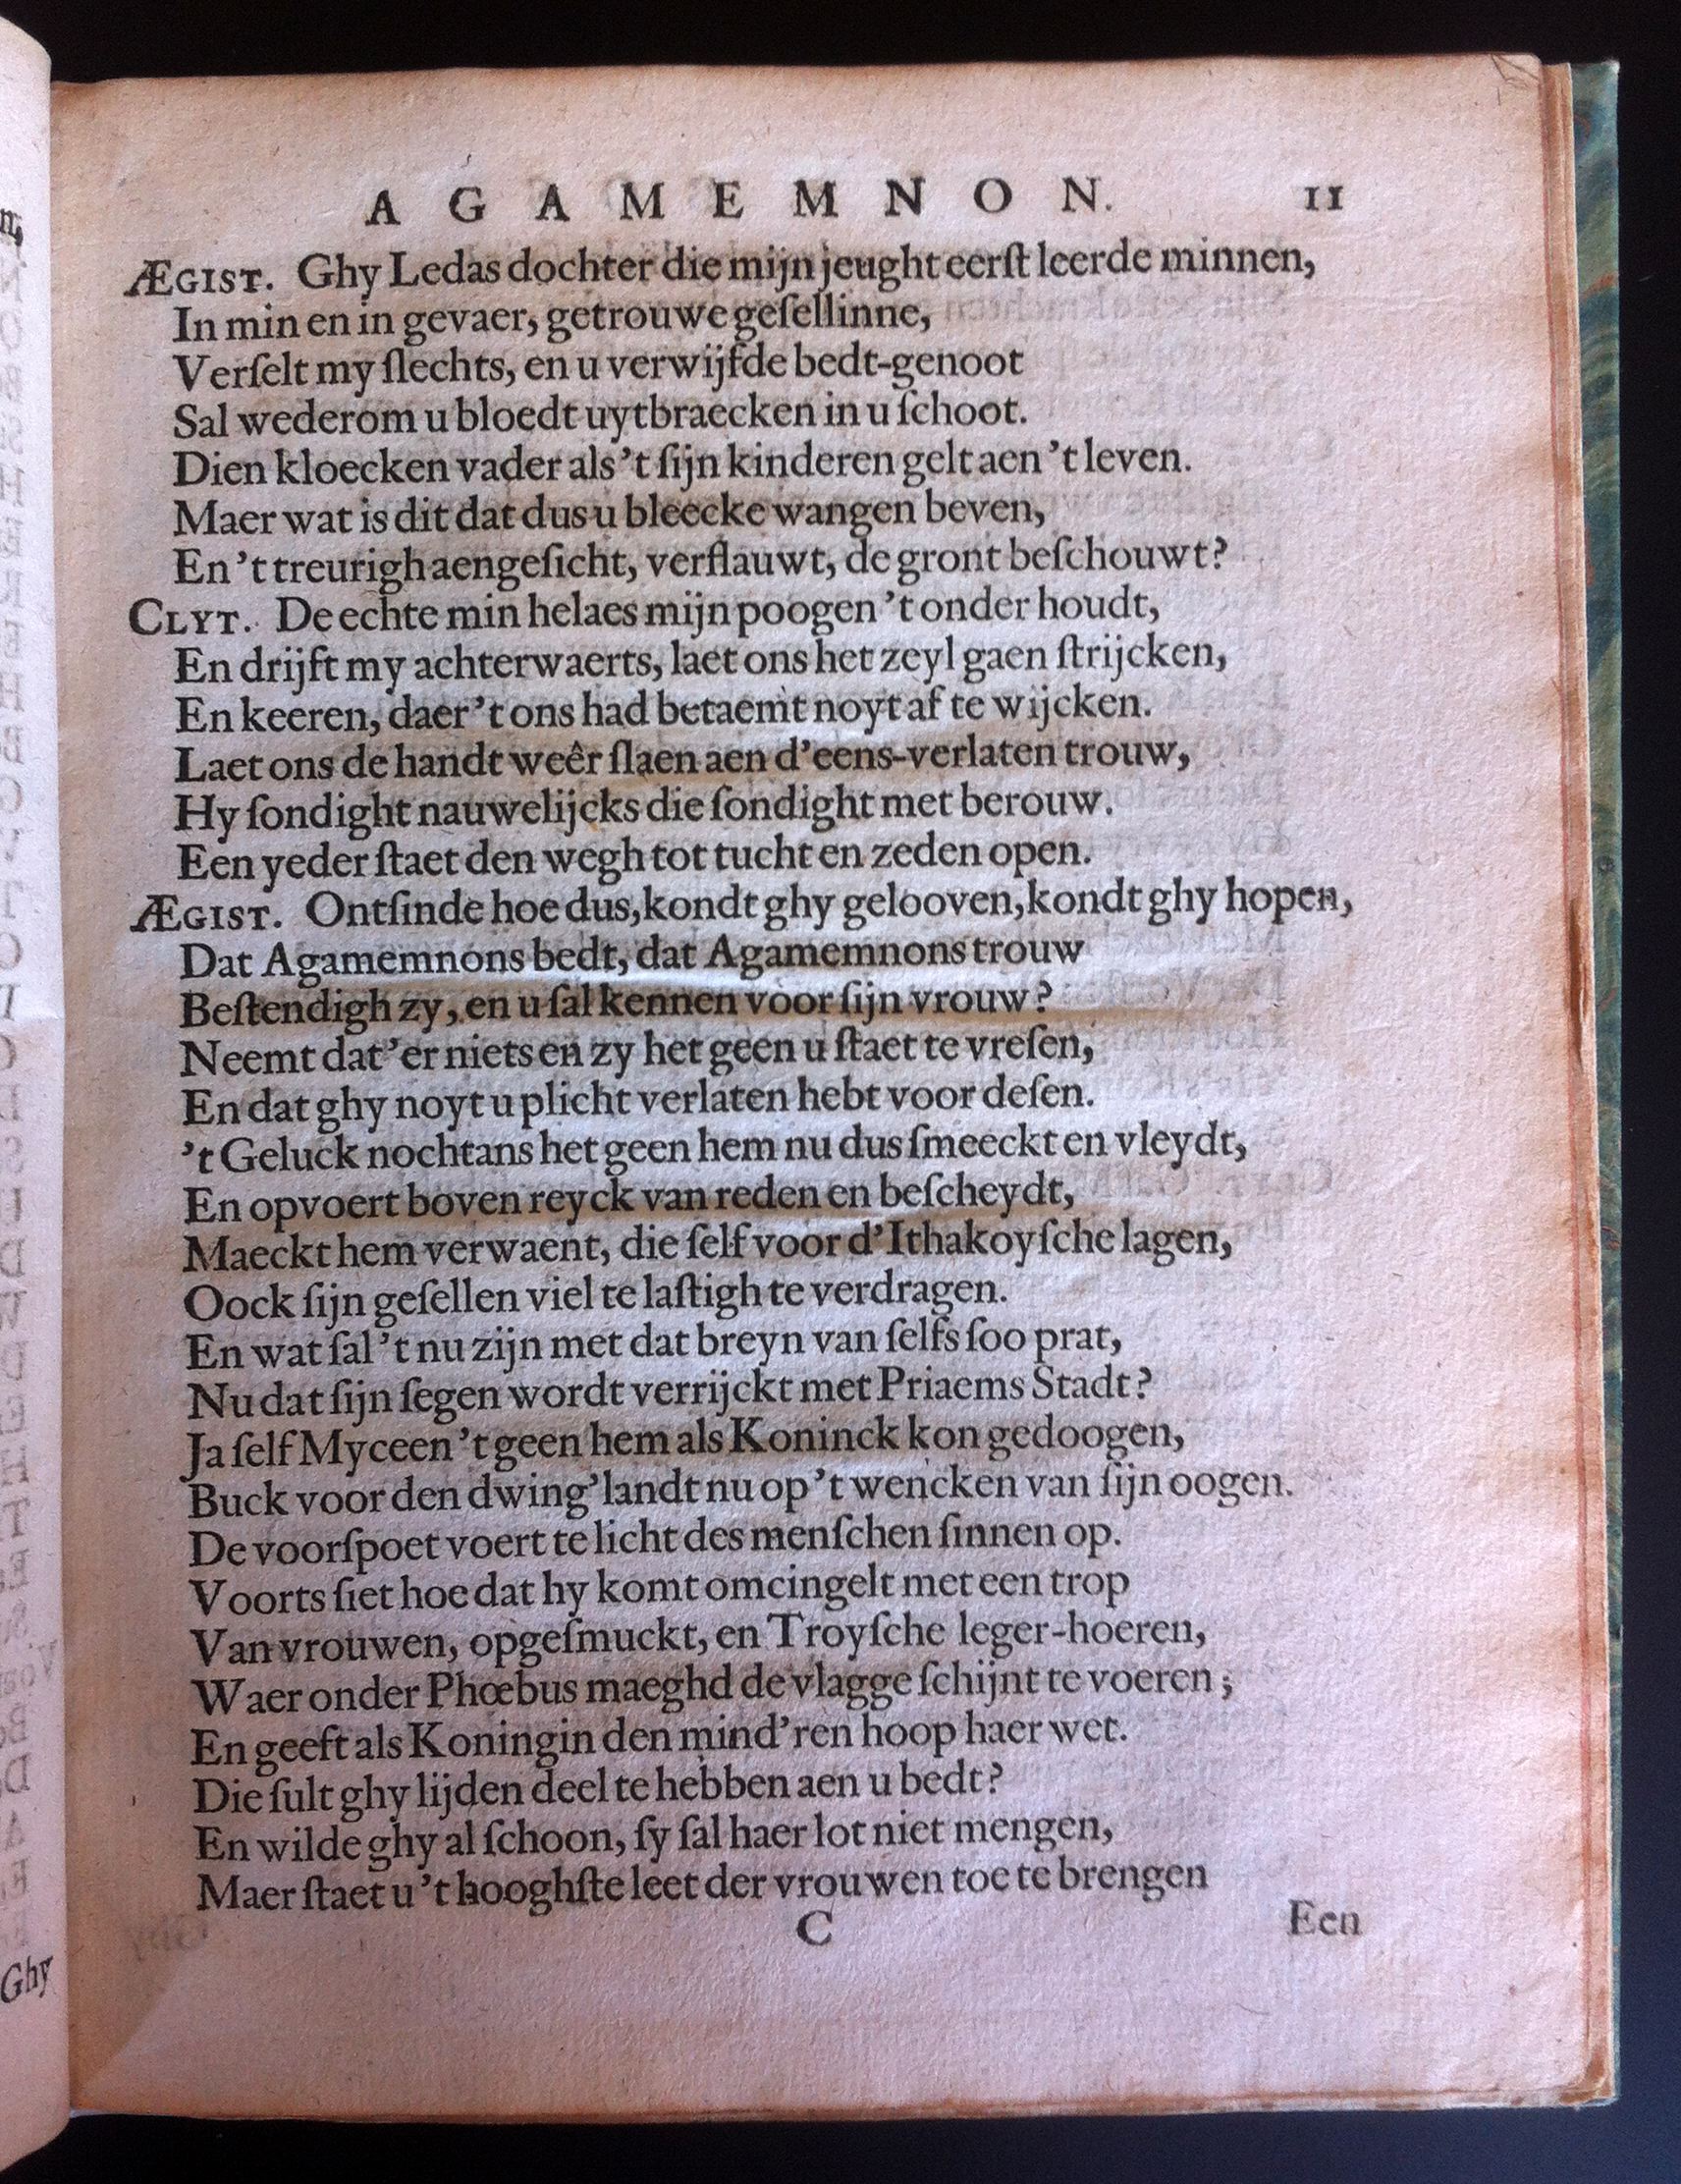 AGAMEMNON. 11
ÆGIST. Ghy Ledas dochter die mijn jeught eerſt leerde minnen,
In min en in gevaer, getrouwe geſellinne,
Verſelt my ſlechts, en u verwijfde bedt-genoot
Sal wederom u bloedt uytbraecken in u ſchoot.
Dien kloecken vader als 't ſijn kinderen gelt aen 't leven.
Maer wat is dit dat dus u bleecke wangen beven,
En 't treurigh aengeſicht, verflauwt, de gront beſchouwt?
CLYT. De echte min helaes mijn poogen 't onder houdt,
En drijft my achterwaerts, laet ons het zeyl gaen ſtrijcken,
En keeren, daer 't ons had betaemt noyt af te wijcken.
Laet ons de handt weêr ſlaen aen d'eens-verlaten trouw,
Hy ſondight nauwelijcks die ſondight met berouw.
Een yeder ſtaet den wegh tot tucht en zeden open.
ÆGIST. Ontſinde hoe dus, kondt ghy gelooven, kondt ghy hopen,
Dat Agamemnons bedt, dat Agamemnons trouw
Beſtendigh zy, en u ſal kennen voor ſijn vrouw?
Neemt dat'er niets en zy het geen u ſtaet te vreſen,
En dat ghy noyt u plicht verlaten hebt voor deſen.
't Geluck nochtans het geen hem nu dus ſmeeckt en vleydt,
En opvoert boven reyck van reden en beſcheydt,
Maeckt hem verwaent, die ſelf voor d'Ithakoyſche lagen,
Oock ſijn geſellen viel te laſtigh te verdragen.
En wat ſal 't nu zijn met dat breyn van ſelfs ſoo prat,
Nu dat ſijn ſegen wordt verrijckt met Priaems Stadt?
Ja ſelf Myceen 't geen hem als Koninck kon gedoogen,
Buck voor den dwing'landt nu op 't wencken van ſijn oogen.
De voorſpoet voert te licht des menſchen ſinnen op.
Voorts ſiet hoe dat hy komt omcingelt met een trop
Van vrouwen, opgeſmuckt, en Troyſche leger-hoeren,
Waer onder Phœbus maeghd de vlagge ſchijnt te voeren;
En geeft als Koningin den mind'ren hoop haer wet.
Die ſult ghy lijden deel te hebben aen u bedt?
En wilde ghy al ſchoon, ſy ſal haer lot niet mengen,
Maer ſtaet u 't hooghſte leet der vrouwen toe te brengen
C Een
Ghy